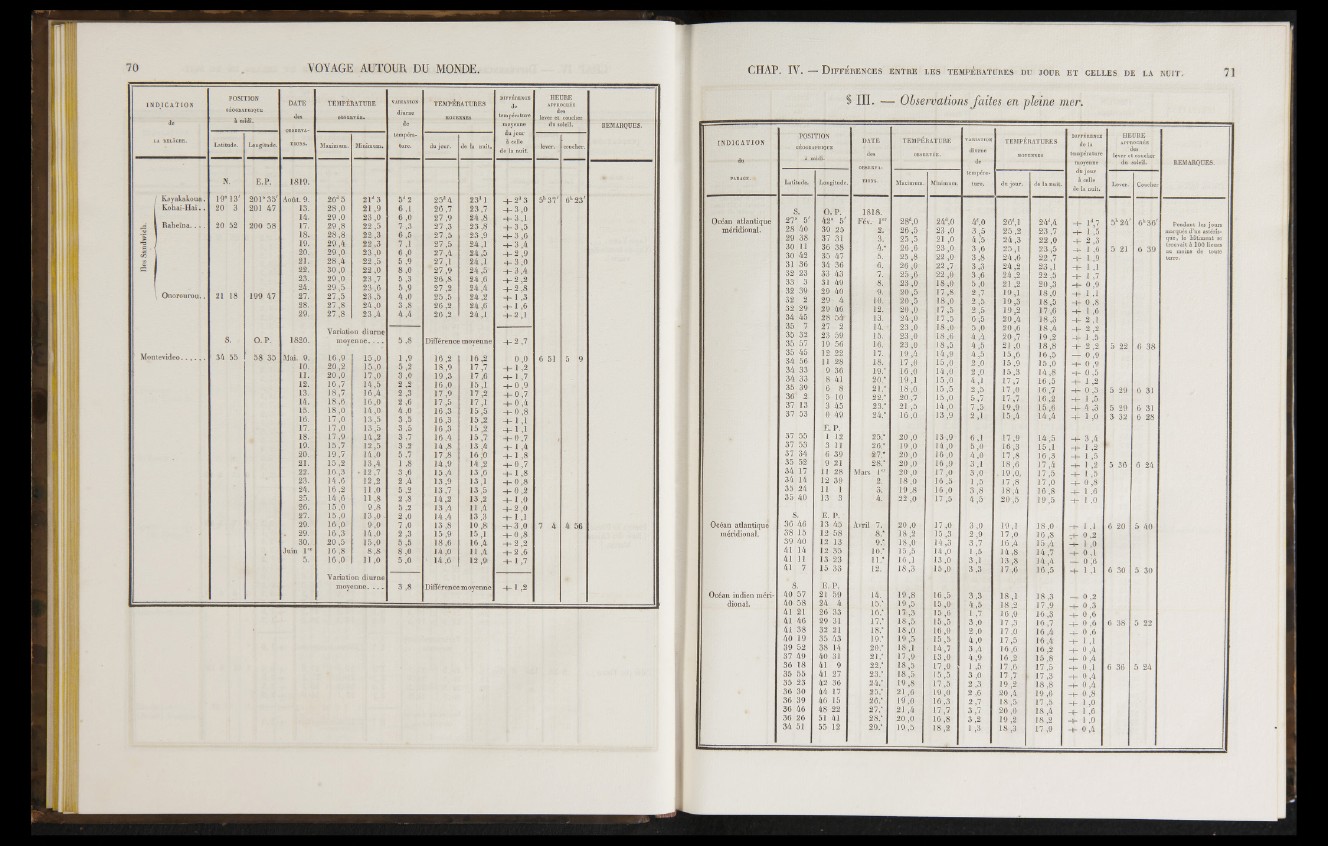 70 VOYAGE AUTOUR DU MONDE.
INDICATION de LA RELÂCHE.
POSITION GÉOGRAPHIQUE à midi. Latitude. Longitude.
DATE des OBSERVATIONS.
TEMPÉRATURE OBSERVÉE. Maximum. Minimum.
VARIATION diurne de température.
TEMPÉRATURES MOYENNES du jour. de la nuit.
DIFFÉRENCE de température moyenne du jour à celle de la nuit.
HEURE APPROCHÉE des lever et coucher du soleil. lever. coucher.
REMARQUES.
N. E.P. 1819.
Iles Sandwich.
Kayakakoua. 19° 13' 201° 35' Août. 9. 26d 5 21d 3 5d 2 25d 4 23d 1 + 2d 3 5h 37' 6h 23'
Kohai-Hai.. 20 3 201 47 13. 28,0 21,9 6,1 26,7 23,7 + 3,0
14. 29,0 23,0 6,0 27,9 24,8 + 3,1
Raheina... 20 52 200 58 17. 29,8 22,5 7,3 27,3 23,8 + 3,5
18. 28,8 22,3 6,5 27,5 23,9 + 3,6
19. 29,4 22,3 7,1 27,5 24,1 + 3,4
20. 29,0 23,0 6,0 27,4 24,5 + 2,9
21. 28,4 22,5 5,9 27,1 24,1 + 3,0
22. 30,0 22,0 8,0 27,9 24,5 + 3,4
23. 29,0 23,7 5,3 26,8 24,6 + 2,2
24. 29,5 23,6 5,9 27,2 24,4 + 2,8
Onorourou.. 21 18 199 47 27. 27,5 23,5 4,0 25,5 24,2 + 1,3
28. 27,8 24,0 3,8 26,2 24,6 + 1,6
29. 27,8 23,4 4,4 26,2 24,1 + 2,1
Variation diurne moyenne.... 5,8 Différence moyenne + 2,7
S. O.P. 1820.
Montevideo...... 34 55 58 35 Mai. 9. 16,9 15,0 1,9 16,2 16,2 0,0 6 51 5 9
10. 20,2 15,0 5,2 18,9 17,7 + 1,2
11. 20,0 17,0 3,0 19,3 17,6 + 1,7
12. 16,7 14,5 2,2 16,0 15,1 + 0,9
13. 18,7 16,4 2,3 17,9 17,2 + 0,7
14. 18,6 16,0 2,6 17,5 17,1 + 0,4
15. 18,0 14,0 4,0 16,3 15,5 + 0,8
16. 17,0 13,5 3,5 16,3 15,2 + 1,1
17. 17,0 13,5 3,5 16,3 15,2 + 1,1
18. 17,9 14,2 3,7 16,4 15,7 + 0,7
19. 15,7 12,5 3,2 14,8 13,4 + 1,4
20. 19,7 14,0 5,7 17,8 16,0 + 1,8
21. 15,2 13,4 1,8 14,9 14,2 + 0,7
22. 16,3 12,7 3,6 15,4 13,6 + 1,8
23. 14,6 12,2 2,4 13,9 13,1 + 0,8
24. 16,2 11,0 5,2 13,7 13,5 + 0,2
25. 14,6 11,8 2,8 14,2 13,2 + 1,0
26. 15,0 9,8 5,2 13,4 11,4 + 2,0
27. 15,0 13,0 2,0 14,4 13,3 + 1,1
29. 16,0 9,0 7,0 13,8 10,8 + 3,0 7 4 4 56
29. 16,3 14,0 2,3 15,9 15,1 + 0,8
30. 20,5 15,0 5,5 18,6 16,4 + 2,2
Juin 1er 16,8 8,8 8,0 14,0 11,4 + 2,6
5. 16,0 11,0 5,0 14,6 12,9 + 1,7
Variation diurne moyenne.... 3,8 Différence moyenne + 1,2
CHAP. IV. — DIFFÉRENCES ENTRE LES TEMPÉRATURES DU JOUR ET CELLES DE LA NUIT. 71
§ III. — Observations faites en pleine mer.
INDICATION du PARAGE.
POSITION GÉOGRAPHIQUE à midi. Latitude. Longitude.
DATE des OBSERVATIONS.
TEMPÉRATURE OBSERVÉE. Maximum. Minimum.
VARIATION diurne de température.
TEMPÉRATURES MOYENNES du jour. de la nuit.
DIFFÉRENCE de la température moyenne du jour à celle de la nuit.
HEURE APPROCHÉE des lever et coucher du soleil. Lever. Coucher
REMARQUES.
S. O.P. 1818.
Océan atlantique méridional. 27° 5' 42° 5' Fév. 1er 28d,0 24d,0 4d,0 26d,1 24d,4 + 1d,7 5h 24' 6h 36'
Pendant les jours marqués d'un astérisque, le bâtiment se trouvait à 100 lieues au moins de toute terre.
28 40 39 25 2. 26,5 23,0 3,5 25,2 23,7 + 1,5
29 38 37 31 3. 25,5 21,0 4,5 24,3 22,0 + 2,3
30 11 36 38 4.* 26,6 23,0 3,6 25,1 23,5 + 1,6 5 21 6 39
30 42 35 47 5. 25,8 22,0 3,8 24,6 22,7 + 1,9
31 36 34 36 6. 26,0 22,7 3,3 24,2 23,1 + 1,1
32 23 33 43 7. 25,6 22,0 3,6 24,2 22,5 + 1,7
33 3 31 49 8. 23,0 18,0 5,0 21,2 20,3 + 0,9
32 39 29 40 9. 20,5 17,8 2,7 19,1 18,0 + 1,1
32 2 29 4 10. 20,5 18,0 2,5 19,3 18,5 + 0,8
32 29 29 46 12. 20,0 17,5 2,5 19,2 17,6 + 1,6
34 45 28 54 13. 24,0 17,5 6,5 20,4 18,3 + 2,1
35 7 27 2 14. 23,0 18,0 5,0 20,6 18,4 + 2,2
35 52 23 59 15. 23,0 18,6 4,4 20,7 19,2 + 1,5
35 57 19 56 16. 23,0 18,5 4,5 21,0 18,8 + 2,2 5 22 6 38
35 45 12 22 17. 19,4 14,9 4,5 15,6 16,5 — 0,9
34 56 11 28 18. 17,0 15,0 2,0 15,9 15,0 + 0,9
34 33 9 36 19.* 16,0 14,0 2,0 15,3 14,8 + 0,5
34 33 8 41 20.* 19,1 15,0 4,1 17,7 16,5 + 1,2
35 39 6 8 21.* 18,0 15,5 2,5 17,0 16,7 + 0,3 5 29 6 31
36 2 5 10 22.* 20,7 15,0 5,7 17,7 16,2 + 1,5
37 13 3 45 23.* 21,5 14,0 7,5 19,9 15,6 + 4,3 5 29 6 31
37 53 0 49 24.* 16,0 13,9 2,1 15,4 14,4 + 1,0 3 32 6 28
E. P.
37 55 1 12 25.* 20,0 13,9 6,1 17,9 14,5 + 3,4
37 53 3 11 26.* 19,0 14,0 5,0 16,3 15,1 + 1,2
37 34 6 39 27* 20,0 16,0 4,0 17,8 16,3 + 1,5
35 52 9 21 28.* 20,0 16,9 3,1 18,6 17,4 + 1,2 5 36 6 24
34 17 11 28 Mars 1er 20,0 17,0 3,0 19,0 17,5 + 1,5
34 14 12 39 2. 18,0 16,5 1,5 17,8 17,0 + 0,8
35 24 11 1 3. 19,8 16,0 3,8 18,4 16,8 + 1,6
35 40 13 3 4. 22,0 17,5 4,5 20,5 19,5 + 1,0
S. E. P.
Océan atlantique méridional. 36 46 13 45 Avril 7. 20,0 17,0 3,0 19,1 18,0 + 1,1 6 20 5 40
38 15 12 58 8.* 18,2 15,3 2,9 17,0 16,8 + 0,2
39 40 12 13 9.* 18,0 14,3 3,7 16,4 15,4 + 1,0
41 14 12 35 10.* 15,5 14,0 1,5 14,8 14,7 + 0,1
41 11 13 23 11.* 16,1 13,0 3,1 13,8 14,4 — 0,6
41 7 15 33 12. 18,3 15,0 3,3 17,6 16,5 + 1,1 6 30 5 30
S. E. P.
Océan indien méridional. 40 57 21 59 14. 19,8 16,5 3,3 18,1 18,3 — 0,2
40 58 24 4 15.* 19,5 15,0 4,5 18,2 17,9 + 0,3
41 21 26 33 16.* 17,3 15,6 1,7 16,9 16,3 + 0,6
41 46 29 31 17.* 18,5 15,5 3,0 17,3 16,7 + 0,6 6 38 5 22
41 38 32 21 18.* 18,0 16,0 2,0 17,0 16,4 + 0,6
40 19 35 43 19.* 19,5 15,5 4,0 17,5 16,4 + 1,1
39 52 38 14 20.* 18,1 14,7 3,4 16,6 16,2 + 0,4
37 49 40 31 21.* 17,9 13,0 4,9 16,2 15,8 + 0,4
36 18 41 9 22.* 18,5 17,0 1,5 17,6 17,5 + 0,1 6 36 5 24
35 55 41 27 23.* 18,5 15,5 3,0 17,7 17,3 + 0,4
35 23 42 36 24.* 19,8 17,5 2,3 19,2 18,8 + 0,4
36 30 44 17 25.* 21,6 19,0 2,6 20,4 19,6 + 0,8
36 39 46 15 26.* 19,0 16,3 2,7 18,5 17,5 + 1,0
36 46 48 22 27.* 21,4 17,7 3,7 20,0 18,4 + 1,6
36 26 51 41 28.* 20,0 16,8 3,2 19,2 18,2 + 1,0
34 51 55 12 29.* 19,5 18,2 1,3 18,3 17,9 + 0,4